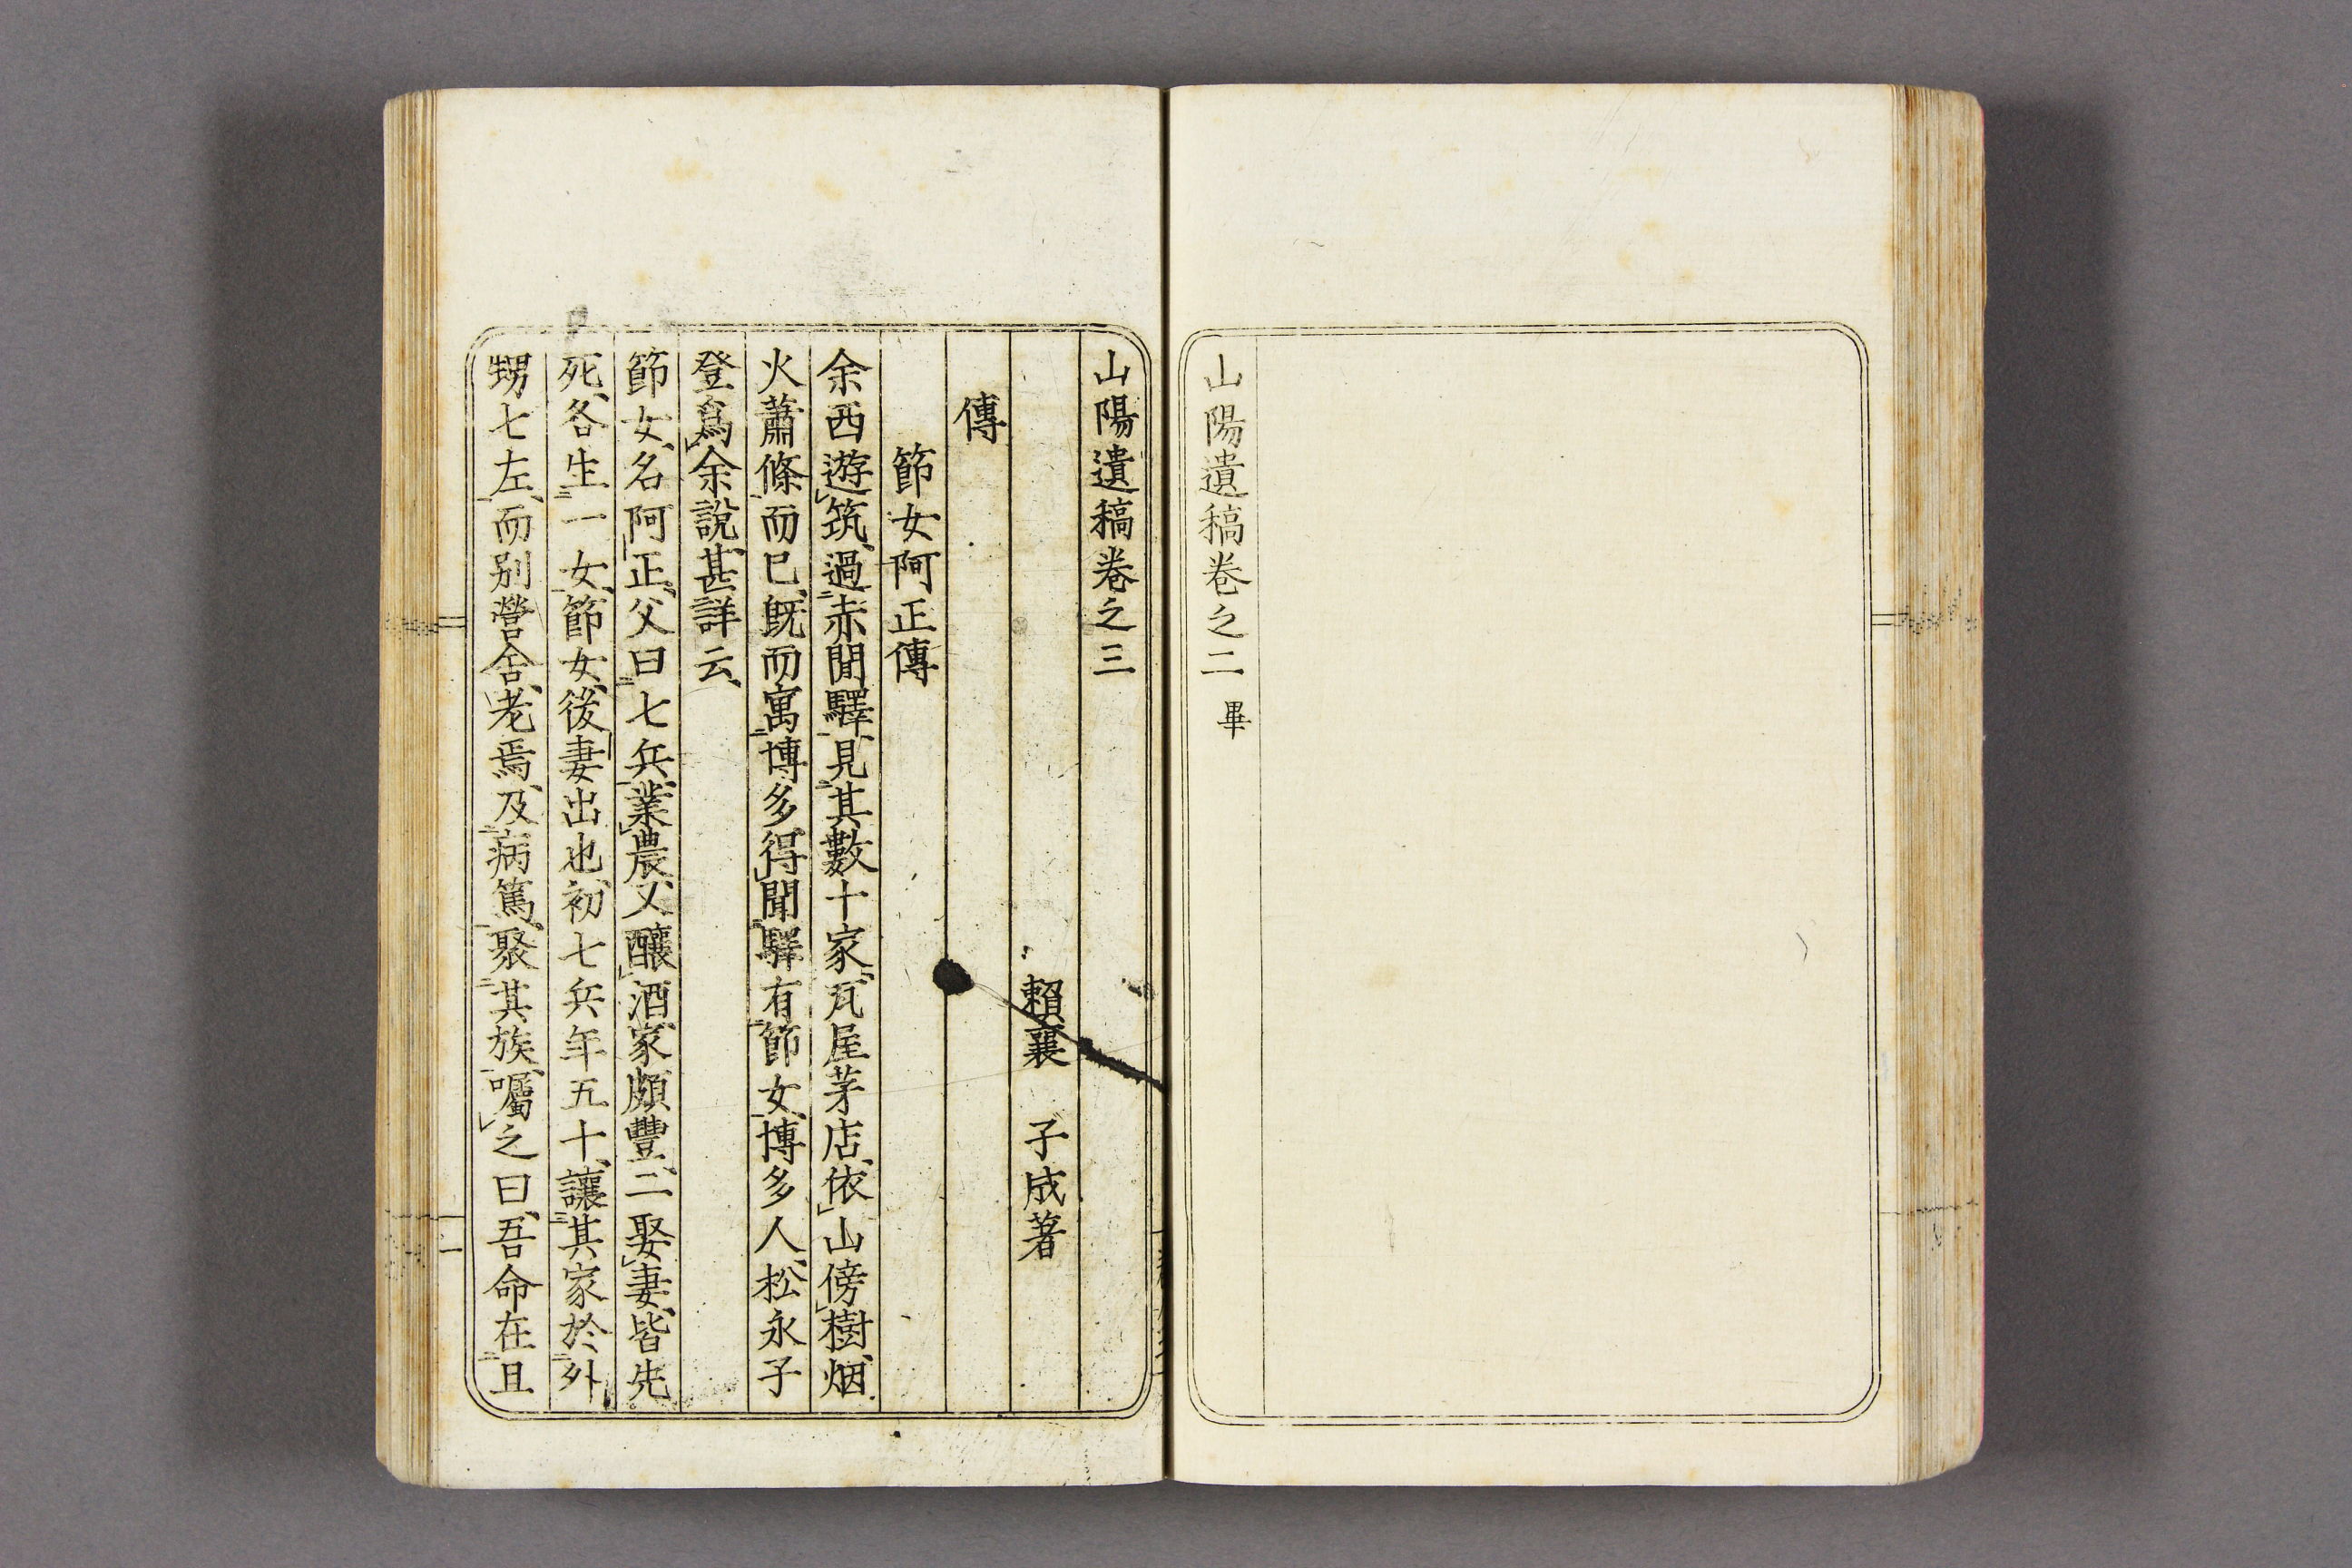 山陽遺稿卷之二 畢
山陽遺稿卷之三
賴襄 子成著
傳
節女阿正傳
余西遊筑、過赤間驛、見其數十家、瓦屋茅店、依山傍樹、烟
火蕭條而已、既而寓博多、得聞驛有節女、博多人、松永子
登爲余說、甚詳云、
節女、名阿正、父曰七兵、業農、又釀酒、家頗豐、二娶妻、皆先
死、各生一女、節女、後妻出也、初七兵年五十、讓其家於外
甥七左、而別營舍、老焉、及病篤、聚其族、囑之曰、吾命在且